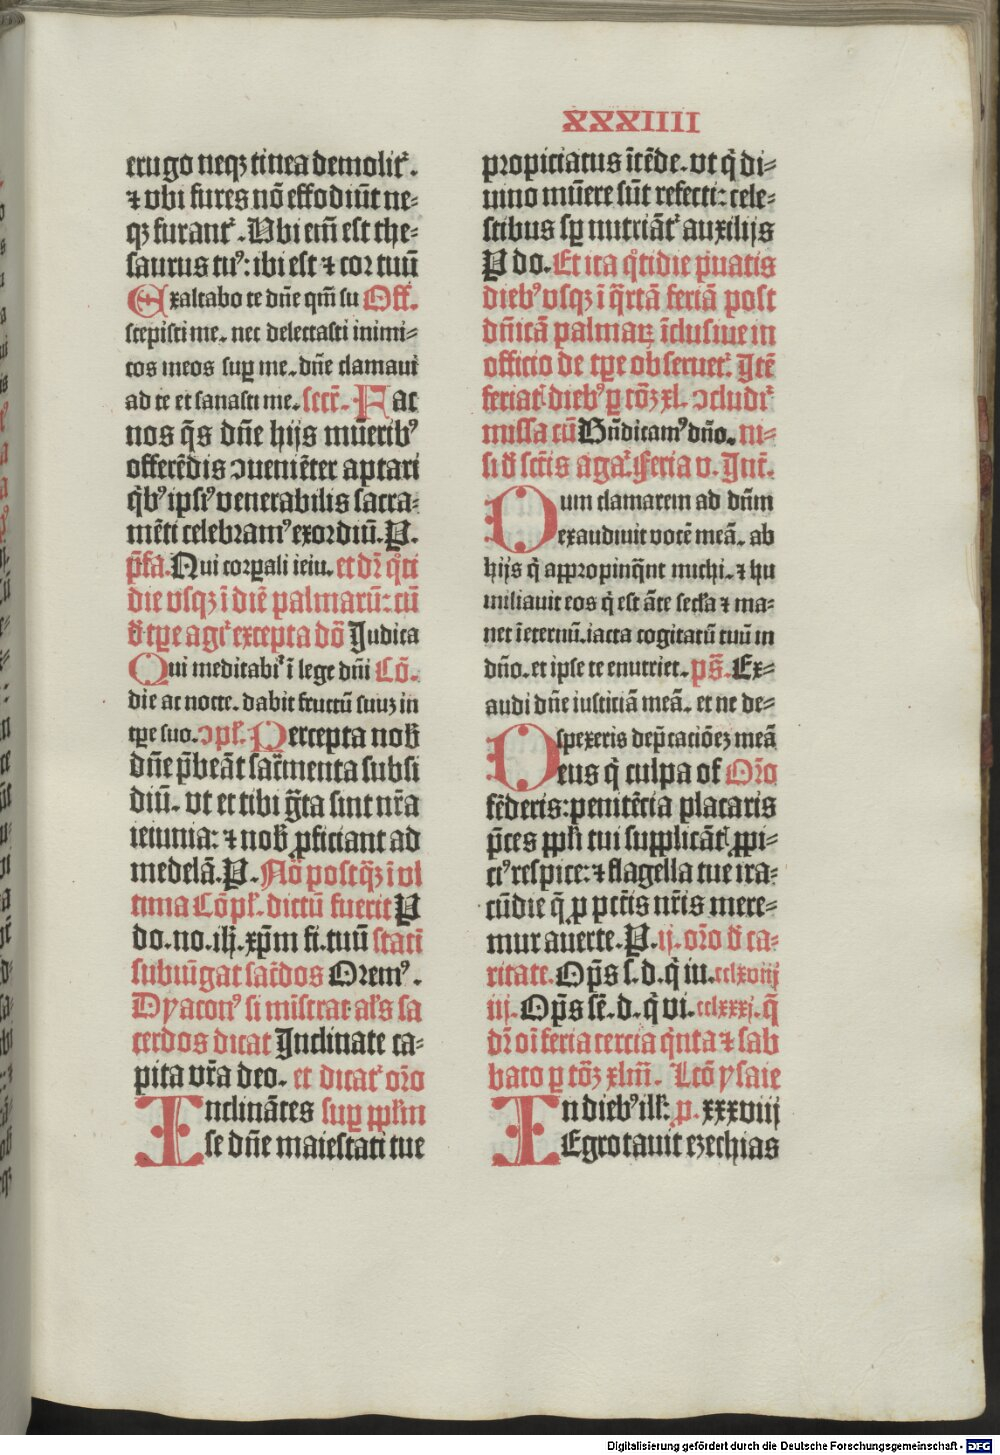 XXXIIII
erugo neqꝫ tinea demolit᷑.
⁊ vbi fures nō effodiūt ne-
qꝫ furant᷑. Vbi em̄ est the-
saurus tuꝰ: ibi est ⁊ cor tuū
Exaltabo te dn̄e qm̄ su Off.
scepisti me. nec delectasti inimi-
cos meos suꝑ me. dn̄e clamaui
ad te et sanasti me. secr̄. Fac
nos q̄s dn̄e hijs mūeribꝰ
offerēdis ꝯueniēter aptari
q̇bꝰ ipsiꝰ venerabilis sacra-
mēti celebramꝰ exordiū. P.
p̄fa. Qui corꝑali ieiu. et dr̄ q̊ti
die vsqꝫ ī diē palmarū: cū
d̄ tꝑe agr̄ excepta dō Judica
Qui meditabr̄ ī lege dn̄i Cō.
die ac nocte. dabit fructū suuꝫ in
tꝑe suo. ꝯpl̄. Percepta nob̄
dn̄e p̄beāt sac̄menta subsi
diū. vt et tibi g̃ta sint nr̄a
ieiunia: ⁊ nob̄ ꝓficiant ad
medelā. P. Nō postq̄ꝫ ī vl
tima Cōpl̄. dictū fuerit P
do. no. ih̄. xp̄m fi. tuū statī
subiūgat sac̄dos Oremꝰ.
Dyaconꝰ si mīstrat al's sa
cerdos dicat Inclinate ca-
pita vr̄a deo. et dicat᷑ or̄o
Inclināces suꝑ ppl̄m
se dn̄e maiestati tue
propiciatus ītēde. vt q̇ di-
uino mūere sūt refecti: cele-
stibus sꝑ nutriāt᷑ auxilijs
P do. Et ita q̊tidie p̄uatis
diebꝰ vsqꝫ ī q̄rtā feriā post
dn̄icā palmaꝝ īclusiue in
officio de tꝑe obseruet᷑. Itē
feriat᷑ diebꝰ ꝑ tōꝫ xl. ꝯcludit᷑
missa cū Bn̄dicamꝰ dn̄o. ni-
si d̄ sctīs agat᷑. Feria v. Int᷑.
Dum clamarem ad dn̄m
exaudiuit vocē meā. ab
hijs q̇ appropinq̄nt michi. ⁊ hu
miliauit eos q̇ est āte sec̄la ⁊ ma-
net īeternū. iacta cogitatū tuū in
dn̄o. et ipse te enutriet. ps̄. Ex-
audi dn̄e iusticiā meā. et ne de-
spexeris dep̄caciōeꝫ meā
Deus q̇ culpa of Or̄o
fēderis: penitēcia placaris
p̄ces ppl̄i tui supplicāt᷑ ꝓpi-
ciꝰ respice: ⁊ flagella tue ira-
cūdie q̄ ꝓ pctīs nr̄is mere-
mur auerte. P. ij. or̄o d̄ ca-
ritate. Op̄s s. d. q̇ iu. cclxviiij
iij. Op̄s sē. d. q̇ vi. cclxxxj. q̄
dr̄ oī feria tercia q̇nta ⁊ sab
bato ꝑ tōꝫ xlm̄. Lcō ysaie
In diebꝰ ill̄: p. xxxviij
Egrotauit ezechias
Digitalisierung gefördert durch die Deutsche Forschungsgemeinschaft - DFG